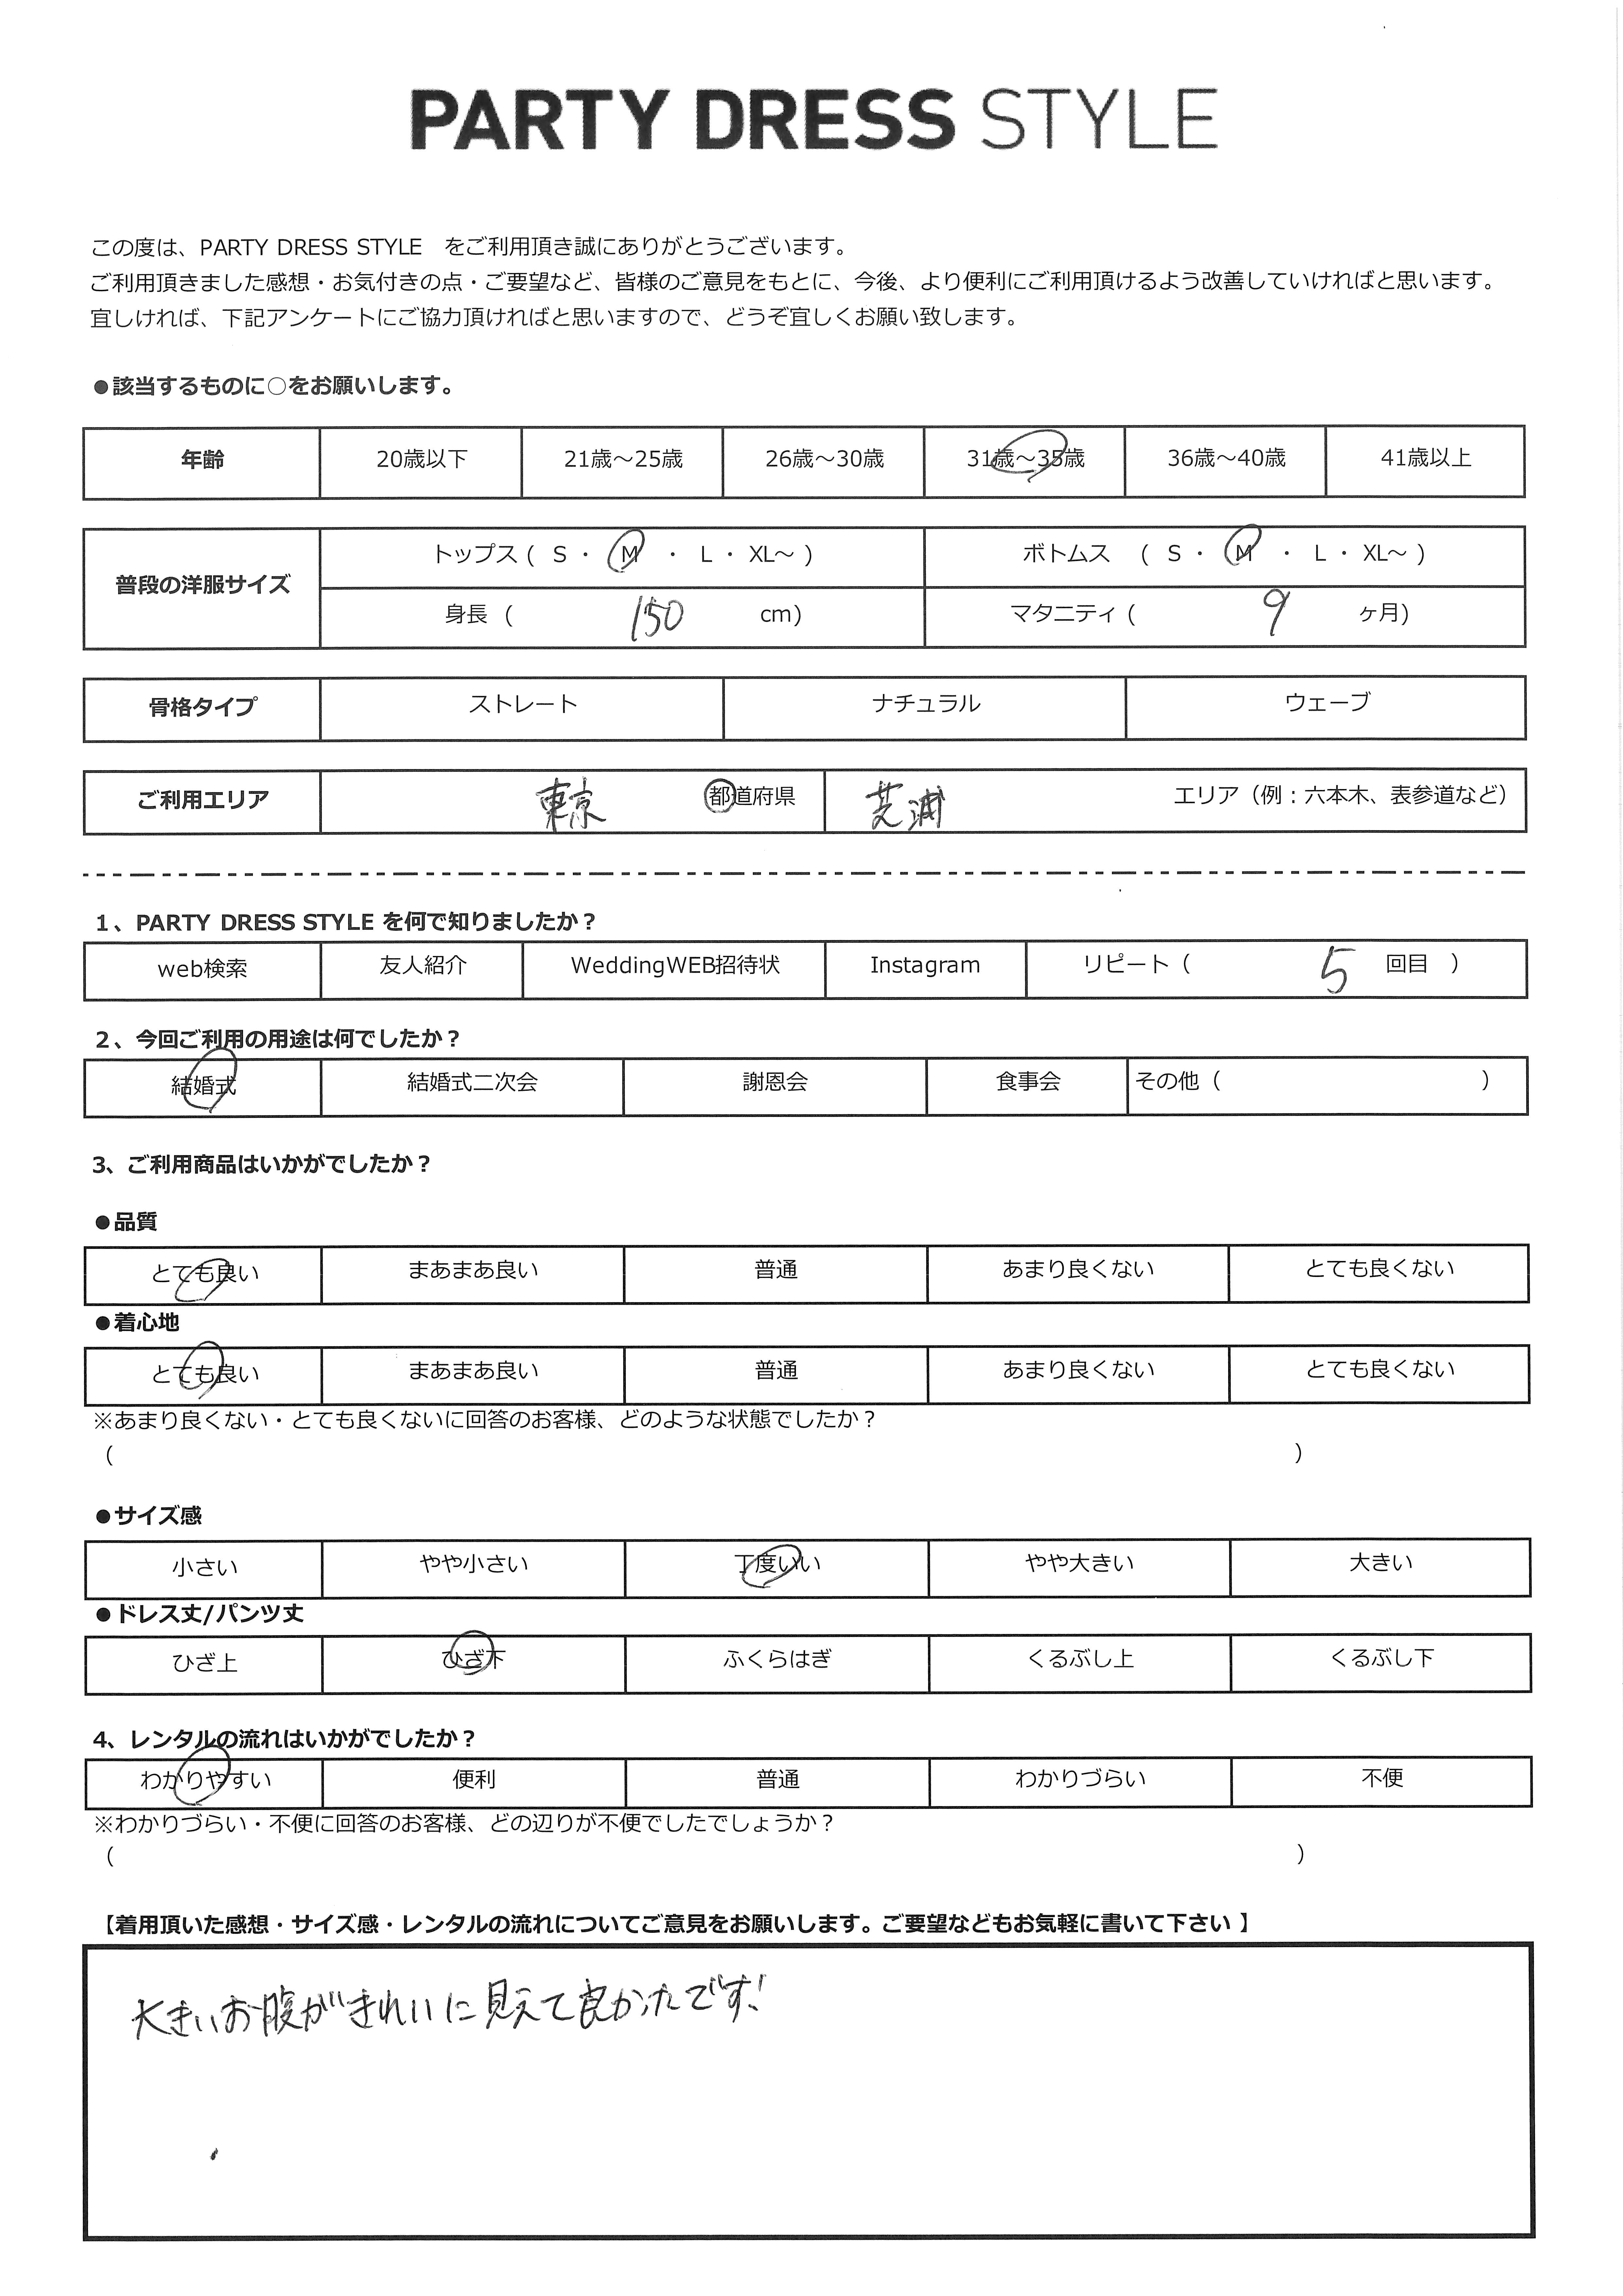 PARTY DRESS STYLE
この度は、PARTY DRESS STYLE　をご利用頂き誠にありがとうございます。
ご利用頂きました感想・お気付きの点・ご要望など、皆様のご意見をもとに、今後、より便利にご利用頂けるよう改善していければと思います。
宜しければ、下記アンケートにご協力頂ければと思いますので、どうぞ宜しくお願い致します。
●該当するものに○をお願いします。
年齢 20歳以下 21歳～25歳 26歳～30歳 31歳～35歳 36歳～40歳 41歳以上
普段の洋服サイズ
トップス ( S ・ M ・ L ・ XL～ ) ボトムス ( S ・ M ・ L ・ XL～ )
身長 ( 150 cm) マタニティ ( 9 ヶ月)
骨格タイプ ストレート ナチュラル ウェーブ
ご利用エリア 東京 都道府県 芝浦 エリア（例：六本木、表参道など）
1、PARTY DRESS STYLE を何で知りましたか？
web検索 友人紹介 WeddingWEB招待状 Instagram リピート（ 5 回目 ）
2、今回ご利用の用途は何でしたか？
結婚式 結婚式二次会 謝恩会 食事会 その他（ ）
3、ご利用商品はいかがでしたか？
●品質
とても良い まあまあ良い 普通 あまり良くない とても良くない
●着心地
とても良い まあまあ良い 普通 あまり良くない とても良くない
※あまり良くない・とても良くないに回答のお客様、どのような状態でしたか？
（ ）
●サイズ感
小さい やや小さい 丁度いい やや大きい 大きい
●ドレス丈/パンツ丈
ひざ上 ひざ下 ふくらはぎ くるぶし上 くるぶし下
4、レンタルの流れはいかがでしたか？
わかりやすい 便利 普通 わかりづらい 不便
※わかりづらい・不便に回答のお客様、どの辺りが不便でしたでしょうか？
（ ）
【着用頂いた感想・サイズ感・レンタルの流れについてご意見をお願いします。ご要望などもお気軽に書いて下さい 】
大きいお腹がきれいに見えて良かったです!